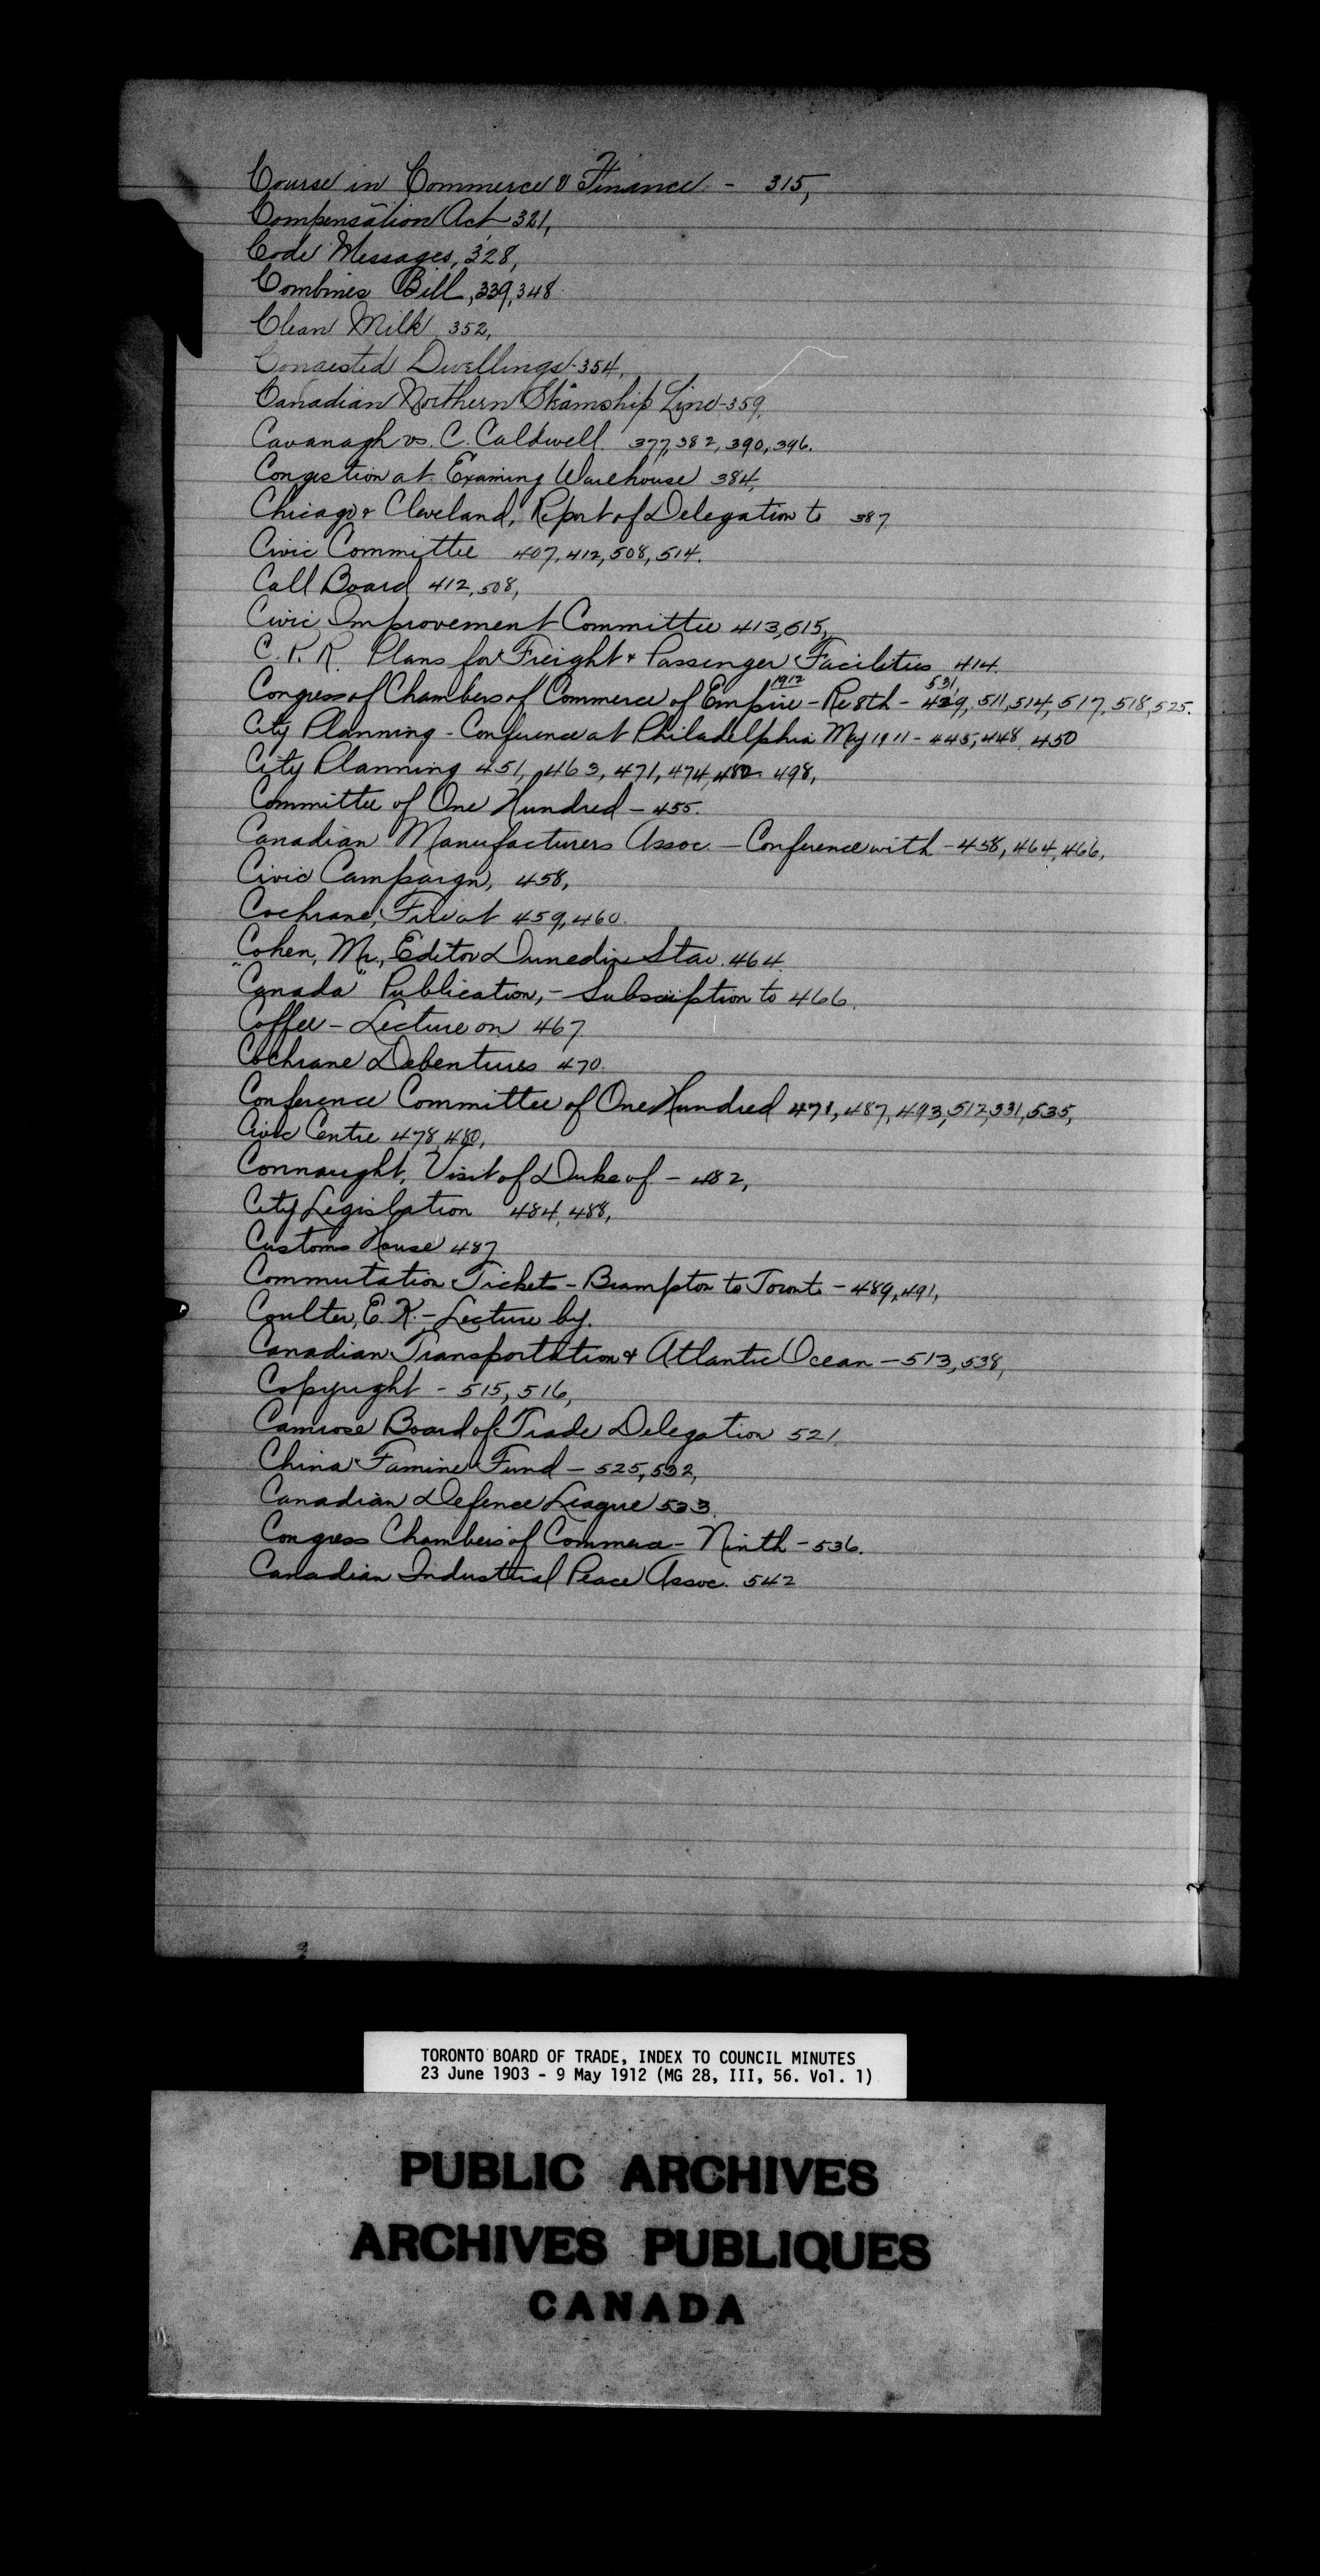 Course in Commerce & Finance - 315,
Compensation Act 321,
Code Messages, 328,
Combines Bill, 339, 348
Clean Milk 352,
Congested Dwellings - 354,
Canadian Northern Steamship Line - 359,
Cavanagh vs. C. Caldwell. 377, 382, 390, 396.
Congestion at Examing Warehouse 384,
Chicago & Cleveland, Report of Delegation to 387
Civic Committee 407, 412, 508, 514.
Call Board 412, 508,
Civic Improvement Committee 413, 515,
C.P.R. Plans for Freight & Passenger Facilities 414.
1912 531,
Congress of Chambers of Commerce of Empire - Re 8th - 429, 511, 514, 517, 518, 525.
City Planning - Conference at Philadelphia May 1911 - 445, 448, 450
City Planning 451, 463, 471, 474, 482, 498,
Committee of One Hundred - 455.
Canadian Manufacturers Assoc. - Conference with - 458, 464, 466,
Civic Campaign, 458,
Cochrane, Fire at 459, 460.
Cohen, Mr., Editor Dunedin Star. 464.
"Canada" Publication, - Subscription to 466.
Coffee - Lecture on 467.
Cochrane Debentures 470.
Conference Committee of One Hundred 471, 487, 493, 512, 531, 535,
Civic Centre 478, 480,
Connaught, Visit of Duke of - 482,
City Legislation 484, 488,
Customs House 487
Commutation Tickets - Brampton to Toronto - 489, 491,
Coulter, E. K. - Lecture by.
Canadian Transportation & Atlantic Ocean - 513, 538,
Copyright - 515, 516,
Camrose Board of Trade Delegation 521.
China Famine Fund - 525, 532,
Canadian Defence League 533.
Congress Chambers of Commerce - Ninth - 536.
Canadian Industrial Peace Assoc. 542
TORONTO BOARD OF TRADE, INDEX TO COUNCIL MINUTES
23 June 1903 - 9 May 1912 (MG 28, III, 56. Vol. 1)
PUBLIC ARCHIVES
ARCHIVES PUBLIQUES
CANADA